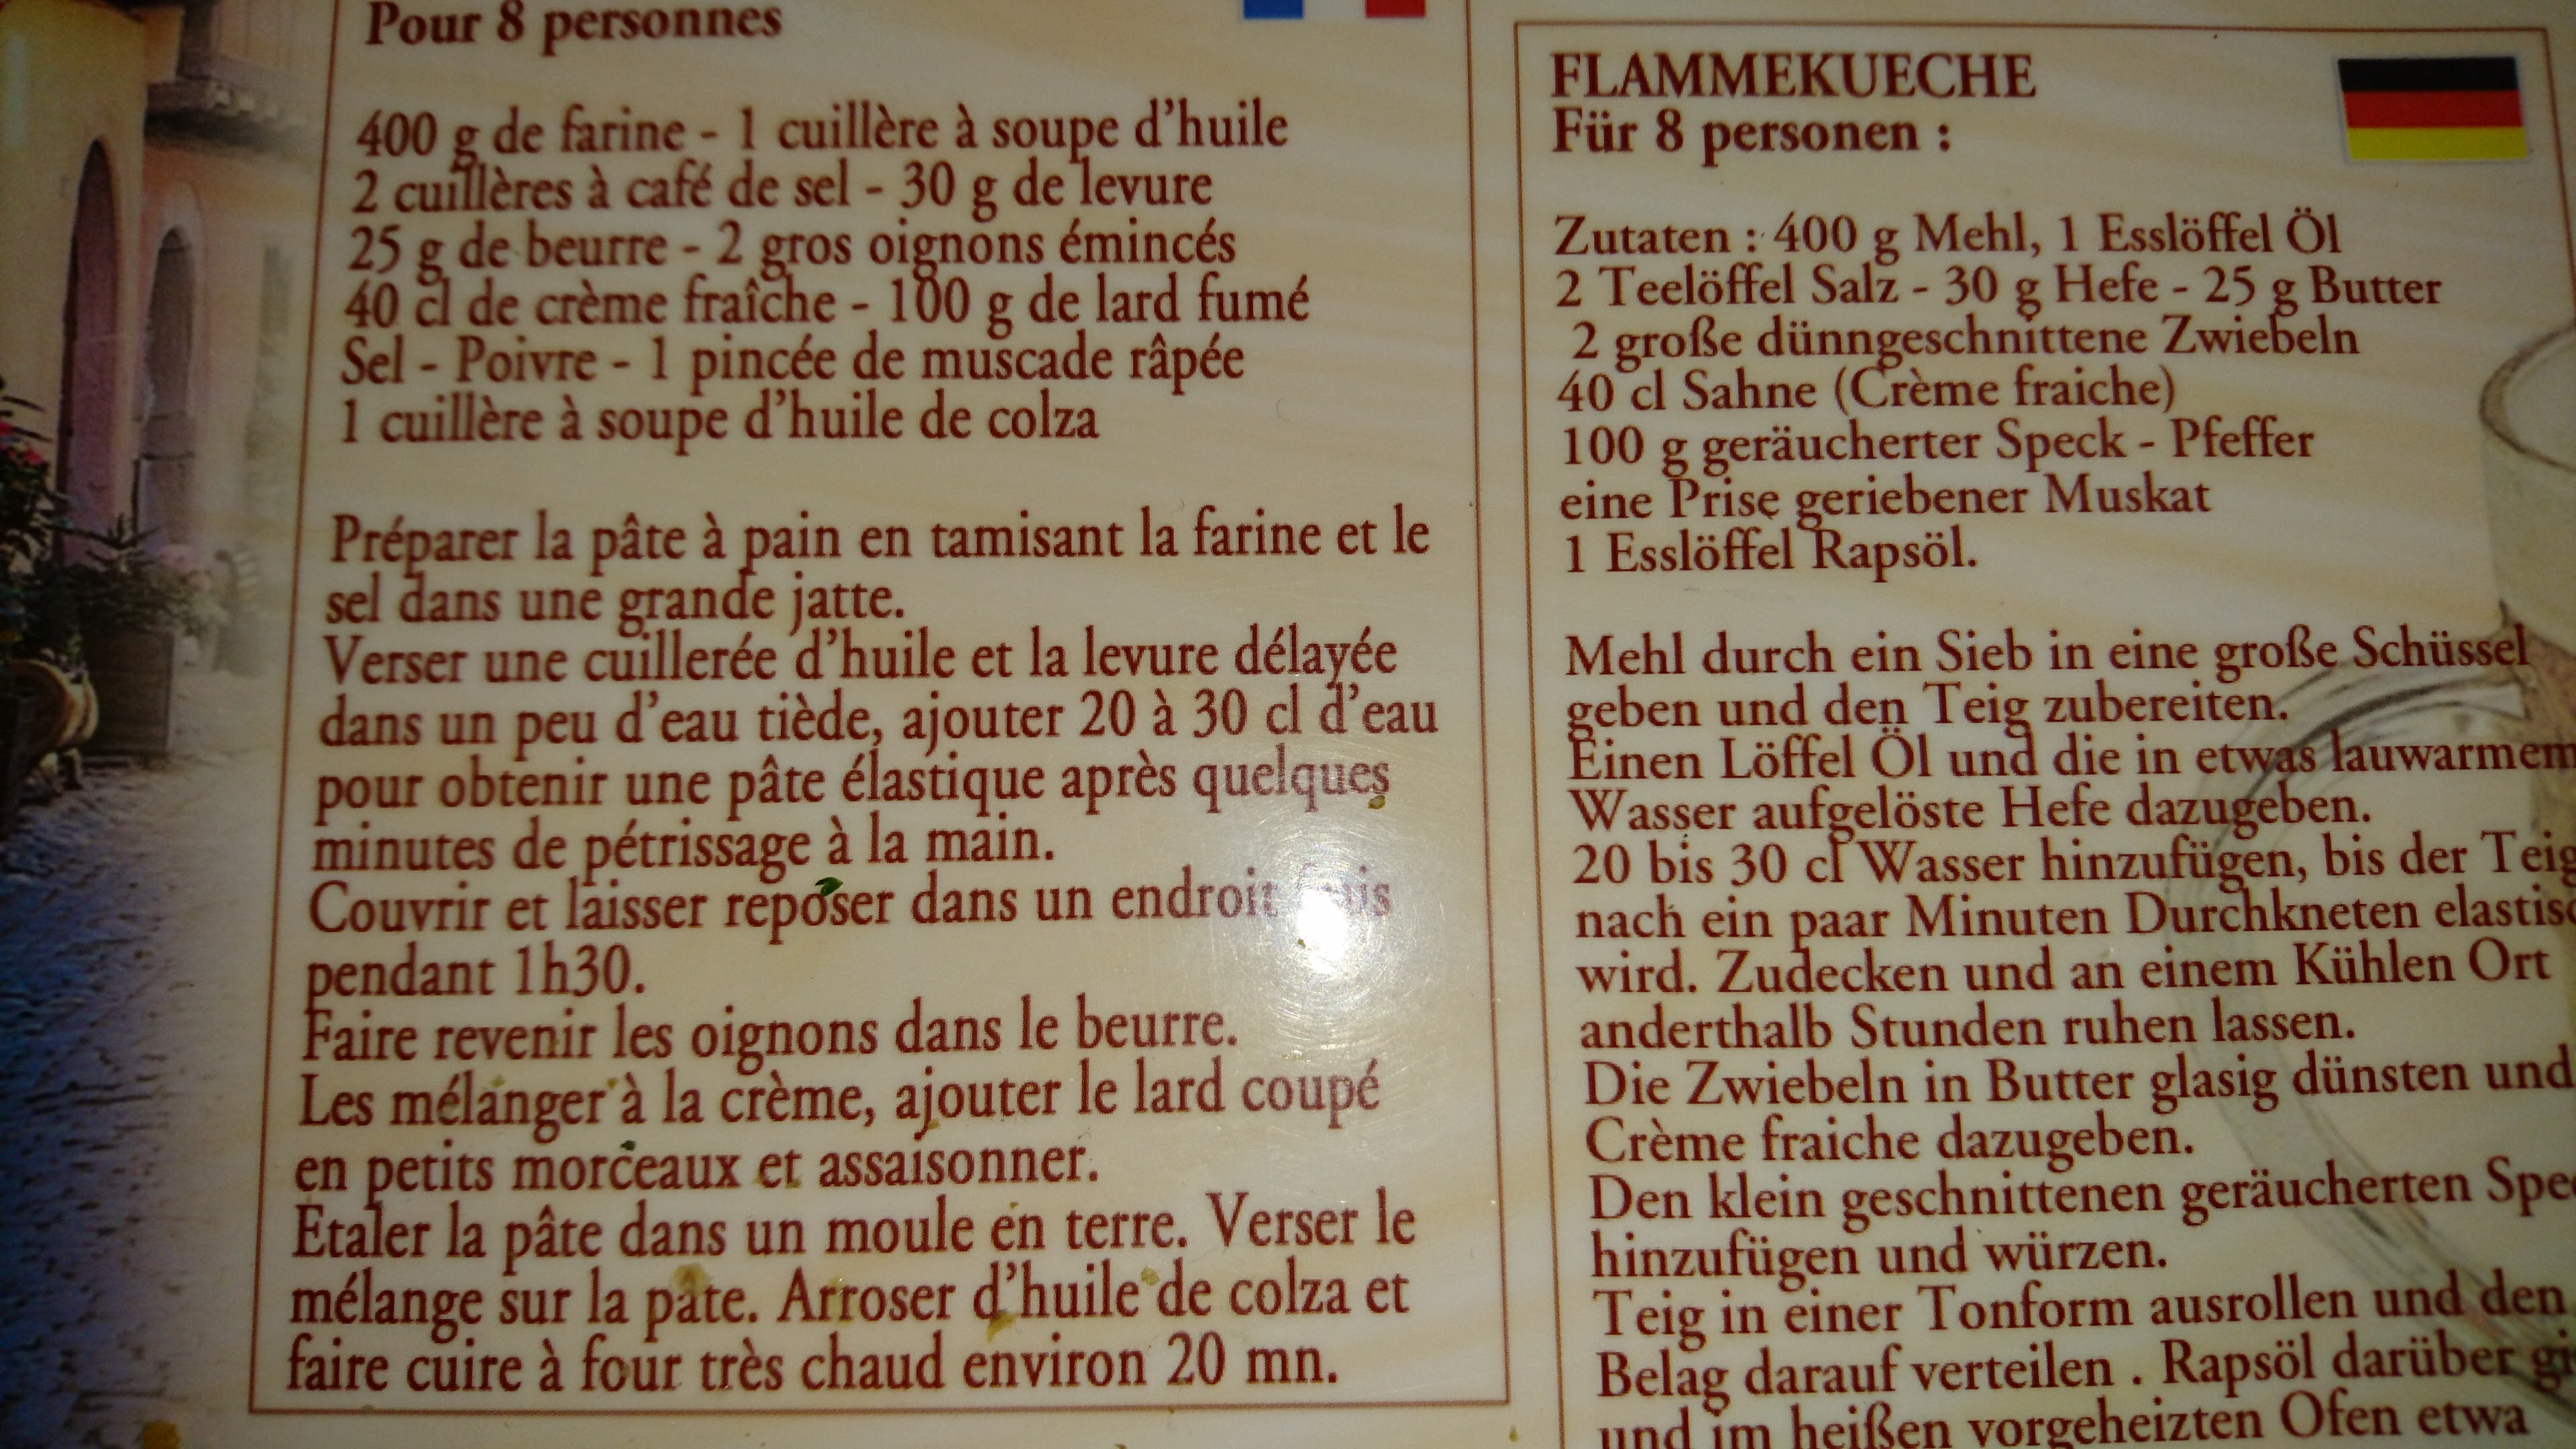 Pour 8 personnes
400 g de farine - 1 cuillère à soupe d'huile
2 cuillères à café de sel - 30 g de levure
25 g de beurre - 2 gros oignons émincés
40 cl de crème fraîche - 100 g de lard fumé
Sel - Poivre - 1 pincée de muscade râpée
1 cuillère à soupe d'huile de colza
Préparer la pâte à pain en tamisant la farine et le
sel dans une grande jatte.
Verser une cuillerée d'huile et la levure délayée
dans un peu d'eau tiède, ajouter 20 à 30 cl d'eau
pour obtenir une pâte élastique après quelques
minutes de pétrissage à la main.
Couvrir et laisser reposer dans un endroit frais
pendant 1h30.
Faire revenir les oignons dans le beurre.
Les mélanger à la crème, ajouter le lard coupé
en petits morceaux et assaisonner.
Etaler la pâte dans un moule en terre. Verser le
mélange sur la pâte. Arroser d'huile de colza et
faire cuire à four très chaud environ 20 mn.
FLAMMEKUECHE
Für 8 personen :
Zutaten : 400 g Mehl, 1 Esslöffel Öl
2 Teelöffel Salz - 30 g Hefe - 25 g Butter
2 große dünngeschnittene Zwiebeln
40 cl Sahne (Crème fraiche)
100 g geräucherter Speck - Pfeffer
eine Prise geriebener Muskat
1 Esslöffel Rapsöl.
Mehl durch ein Sieb in eine große Schüssel
geben und den Teig zubereiten.
Einen Löffel Öl und die in etwas lauwarmem
Wasser aufgelöste Hefe dazugeben.
20 bis 30 cl Wasser hinzufügen, bis der Teig
nach ein paar Minuten Durchkneten
wird. Zudecken und an einem Kühlen Ort
anderthalb Stunden ruhen lassen.
Die Zwiebeln in Butter glasig dünsten und
Crème fraiche dazugeben.
Den klein geschnittenen geräucherten
hinzufügen und würzen.
Teig in einer Tonform ausrollen und den
Belag darauf verteilen . Rapsöl darüber
und im heißen vorgeheizten Ofen etwa